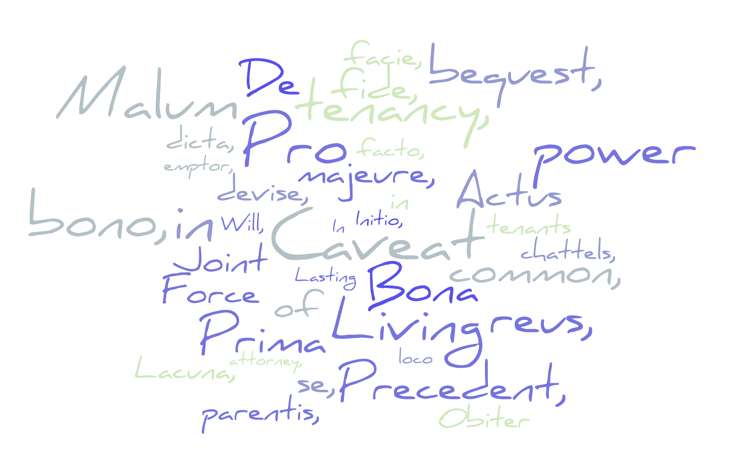 facie,
De fide, bequest,
Malum tenancy,
dicta, Pro facto, power
emptor, majeure,
devise, in Actus
bono, in Will, In Initio, Caveat tenants
Joint chattels,
Force Lasting Bona common,
of
Prima Living reus,
Lacuna, attorney, loco
se, Precedent,
parentis, Obiter